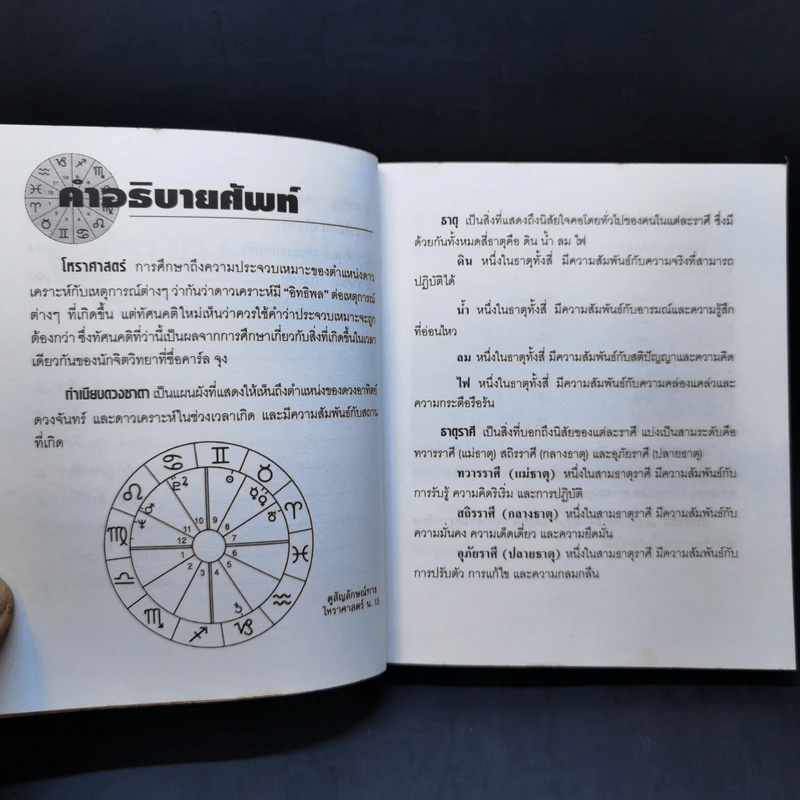 คำอธิบายศัพท์
โหราศาสตร์ การศึกษาถึงความประจวบเหมาะของตำแหน่งดาว
เคราะห์กับเหตุการณ์ต่างๆ ว่ากันว่าดาวเคราะห์มี "อิทธิพล" ต่อเหตุการณ์
ต่างๆ ที่เกิดขึ้น แต่ทัศนคติใหม่เห็นว่าควรใช้คำว่าประจวบเหมาะจะถูก
ต้องกว่า ซึ่งทัศนคติที่ว่านี้เป็นผลจากการศึกษาเกี่ยวกับสิ่งที่เกิดขึ้นในเวลา
เดียวกันของนักจิตวิทยาที่ชื่อคาร์ล จุง
ทำเนียบดวงชาตา เป็นแผนผังที่แสดงให้เห็นถึงตำแหน่งของดวงอาทิตย์
ดวงจันทร์ และดาวเคราะห์ในช่วงเวลาเกิด และมีความสัมพันธ์กับสถาน
ที่เกิด
♋ ♊ ♉
♌ ♈
♍ ♓
♎ ♒
♏ ♐ ♑
11 10 9 8
12 7
1 6
2 3 4 5
ดูสัญลักษณ์ทาง
โหราศาสตร์ น. 13
ธาตุ เป็นสิ่งที่แสดงถึงนิสัยใจคอโดยทั่วไปของคนในแต่ละราศี ซึ่งมี
ด้วยกันทั้งหมดสี่ธาตุคือ ดิน น้ำ ลม ไฟ
ดิน หนึ่งในธาตุทั้งสี่ มีความสัมพันธ์กับความจริงที่สามารถ
ปฏิบัติได้
น้ำ หนึ่งในธาตุทั้งสี่ มีความสัมพันธ์กับอารมณ์และความรู้สึก
ที่อ่อนไหว
ลม หนึ่งในธาตุทั้งสี่ มีความสัมพันธ์กับสติปัญญาและความคิด
ไฟ หนึ่งในธาตุทั้งสี่ มีความสัมพันธ์กับความคล่องแคล่วและ
ความกระตือรือร้น
ธาตุราศี เป็นสิ่งที่บอกถึงนิสัยของแต่ละราศี แบ่งเป็นสามระดับคือ
ทวารราศี (แม่ธาตุ) สถิรราศี (กลางธาตุ) และอุภัยราศี (ปลายธาตุ)
ทวารราศี (แม่ธาตุ) หนึ่งในสามธาตุราศี มีความสัมพันธ์กับ
การรับรู้ ความคิดริเริ่ม และการปฏิบัติ
สถิรราศี (กลางธาตุ) หนึ่งในสามธาตุราศี มีความสัมพันธ์กับ
ความมั่นคง ความเด็ดเดี่ยว และความยืดมั่น
อุภัยราศี (ปลายธาตุ) หนึ่งในสามธาตุราศี มีความสัมพันธ์กับ
การปรับตัว การแก้ไข และความกลมกลืน